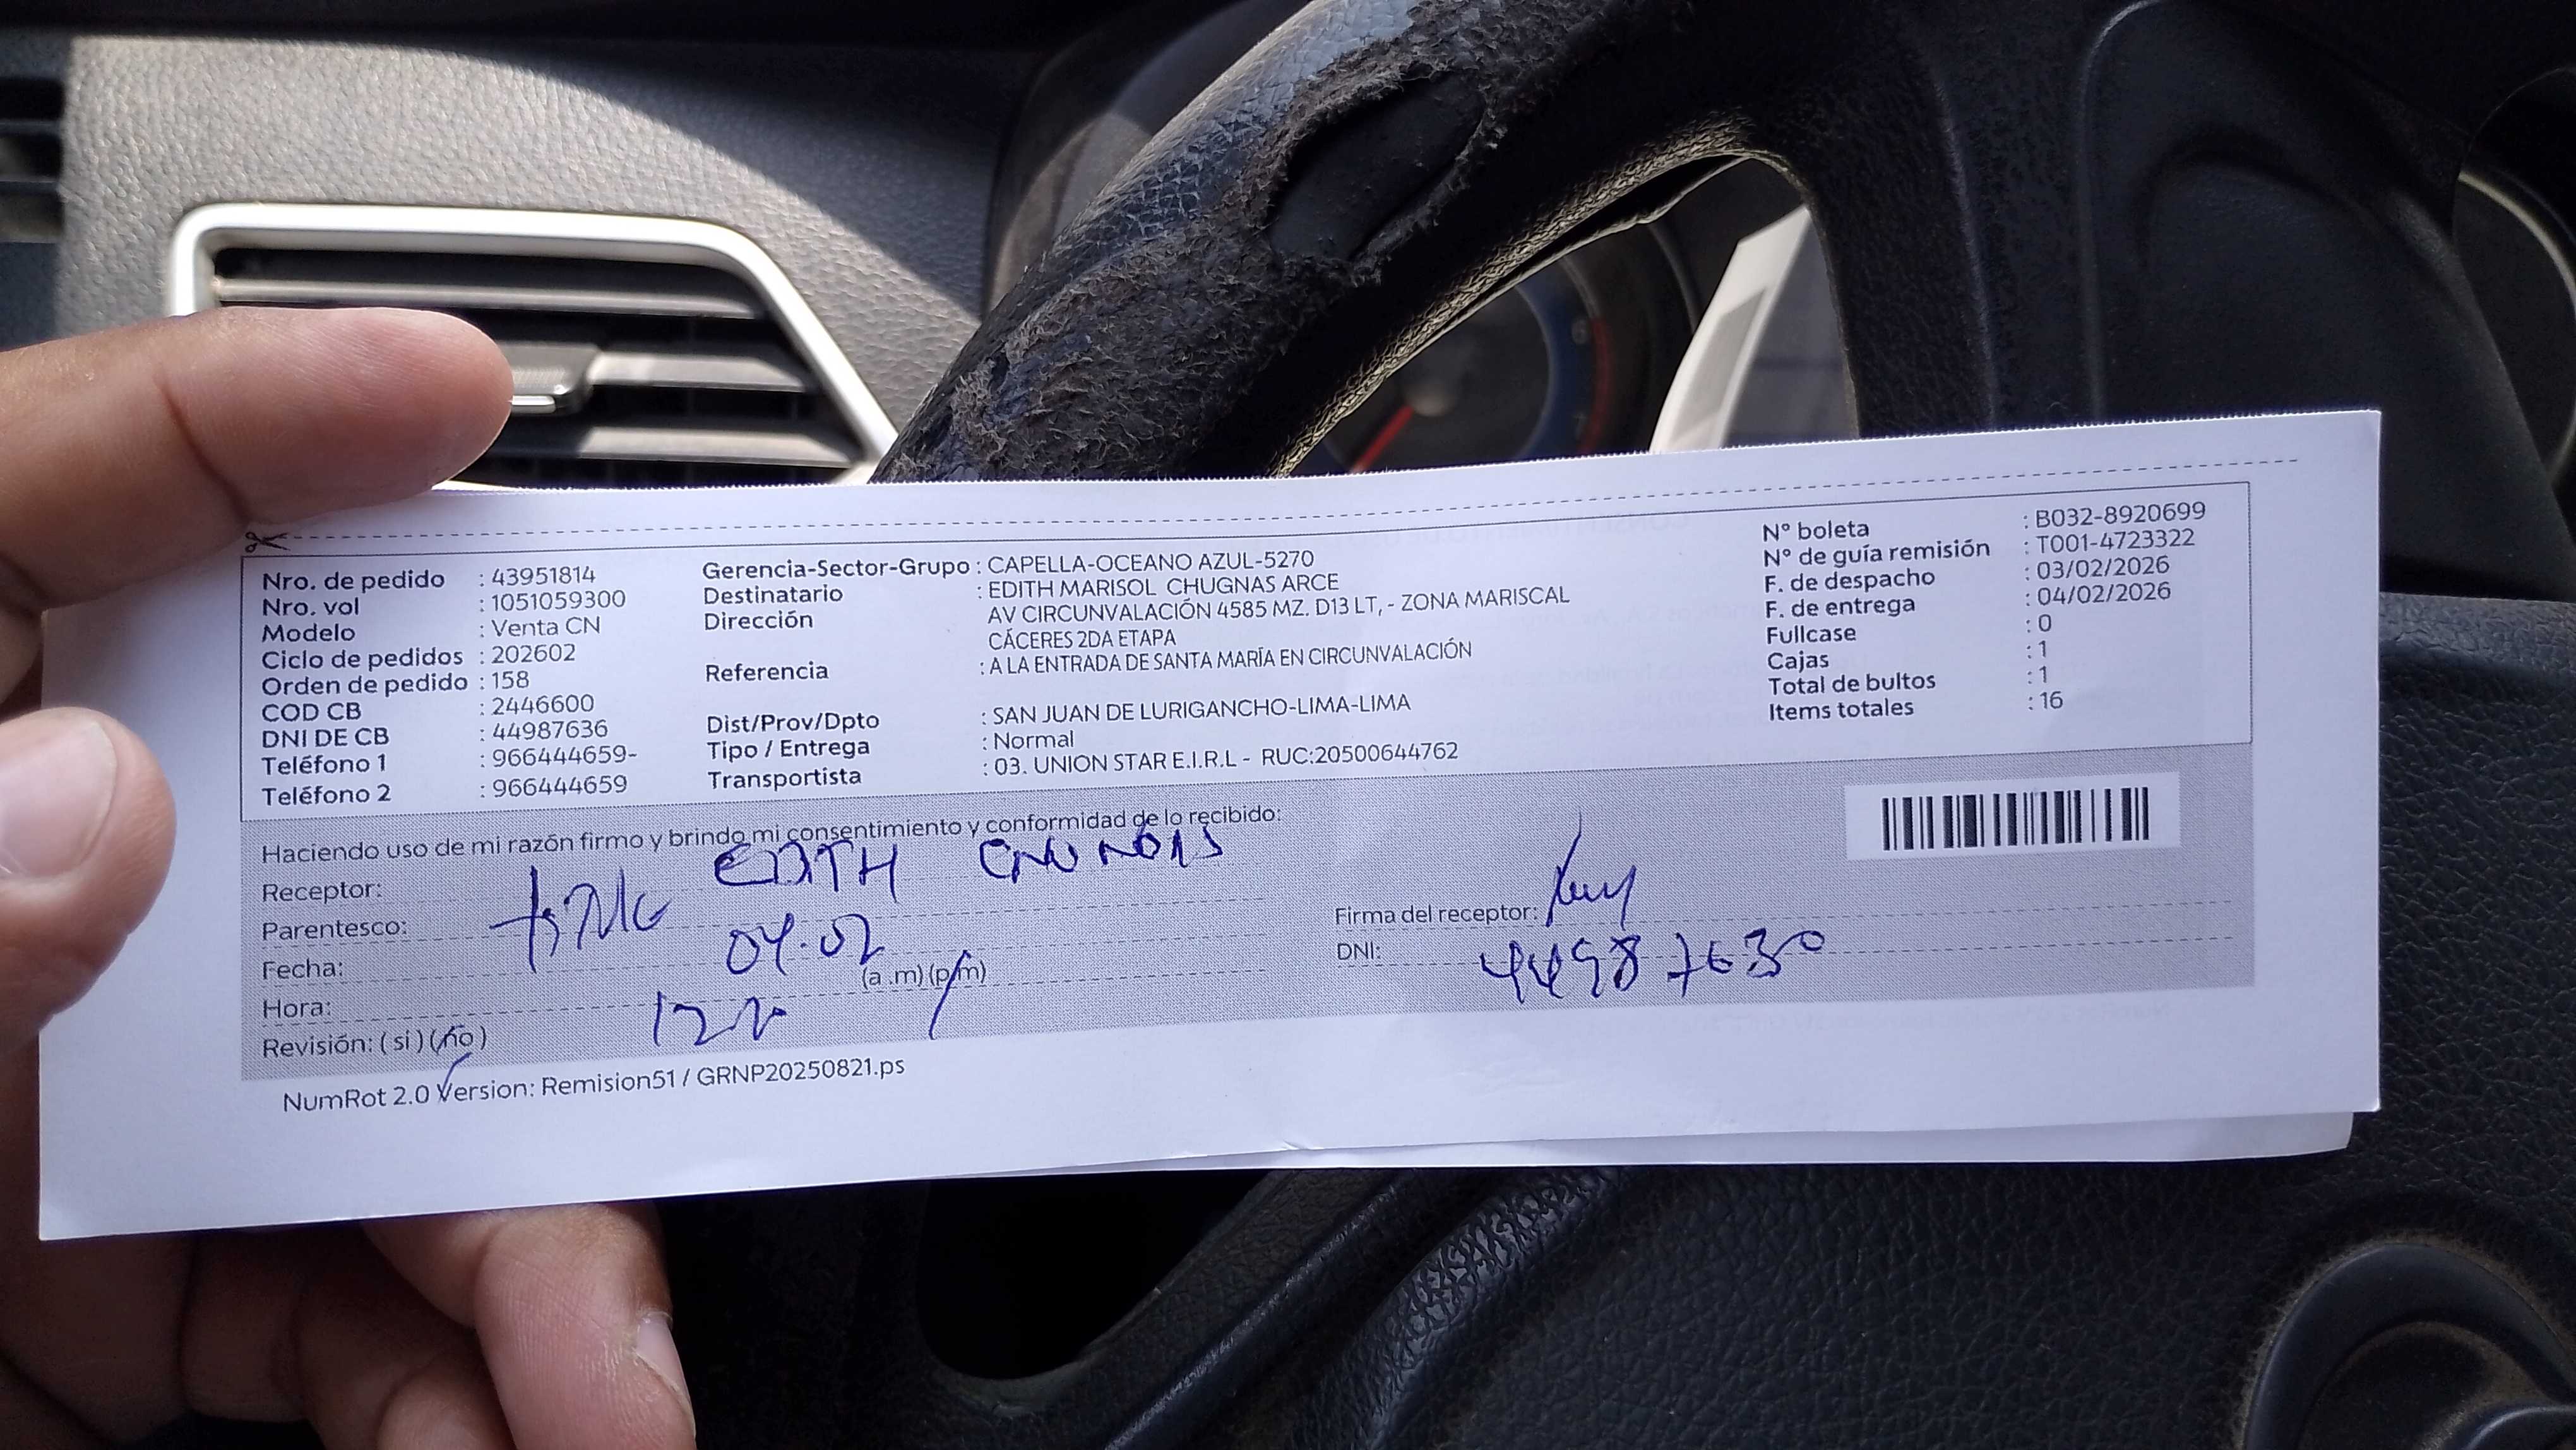 Nro. de pedido : 43951814
Nro. vol : 1051059300
Modelo : Venta CN
Ciclo de pedidos : 202602
Orden de pedido : 158
COD CB : 2446600
DNI DE CB : 44987636
Teléfono 1 : 966444659-
Teléfono 2 : 966444659
Gerencia-Sector-Grupo : CAPELLA-OCEANO AZUL-5270
Destinatario : EDITH MARISOL CHUGNAS ARCE
Dirección AV CIRCUNVALACIÓN 4585 MZ. D13 LT, - ZONA MARISCAL
CÁCERES 2DA ETAPA
Referencia : A LA ENTRADA DE SANTA MARÍA EN CIRCUNVALACIÓN
Dist/Prov/Dpto : SAN JUAN DE LURIGANCHO-LIMA-LIMA
Tipo / Entrega : Normal
Transportista : 03. UNION STAR E.I.R.L - RUC:20500644762
N° boleta : B032-8920699
N° de guía remisión : T001-4723322
F. de despacho : 03/02/2026
F. de entrega : 04/02/2026
Fullcase : 0
Cajas : 1
Total de bultos : 1
Items totales : 16
Haciendo uso de mi razón firmo y brindo mi consentimiento y conformidad de lo recibido:
Receptor: EDITH
Parentesco:
Fecha: 04.02
Hora: (a .m) (p.m)
Revisión: ( si ) ( no )
Firma del receptor:
DNI: 44987630
NumRot 2.0 Version: Remision51 / GRNP20250821.ps